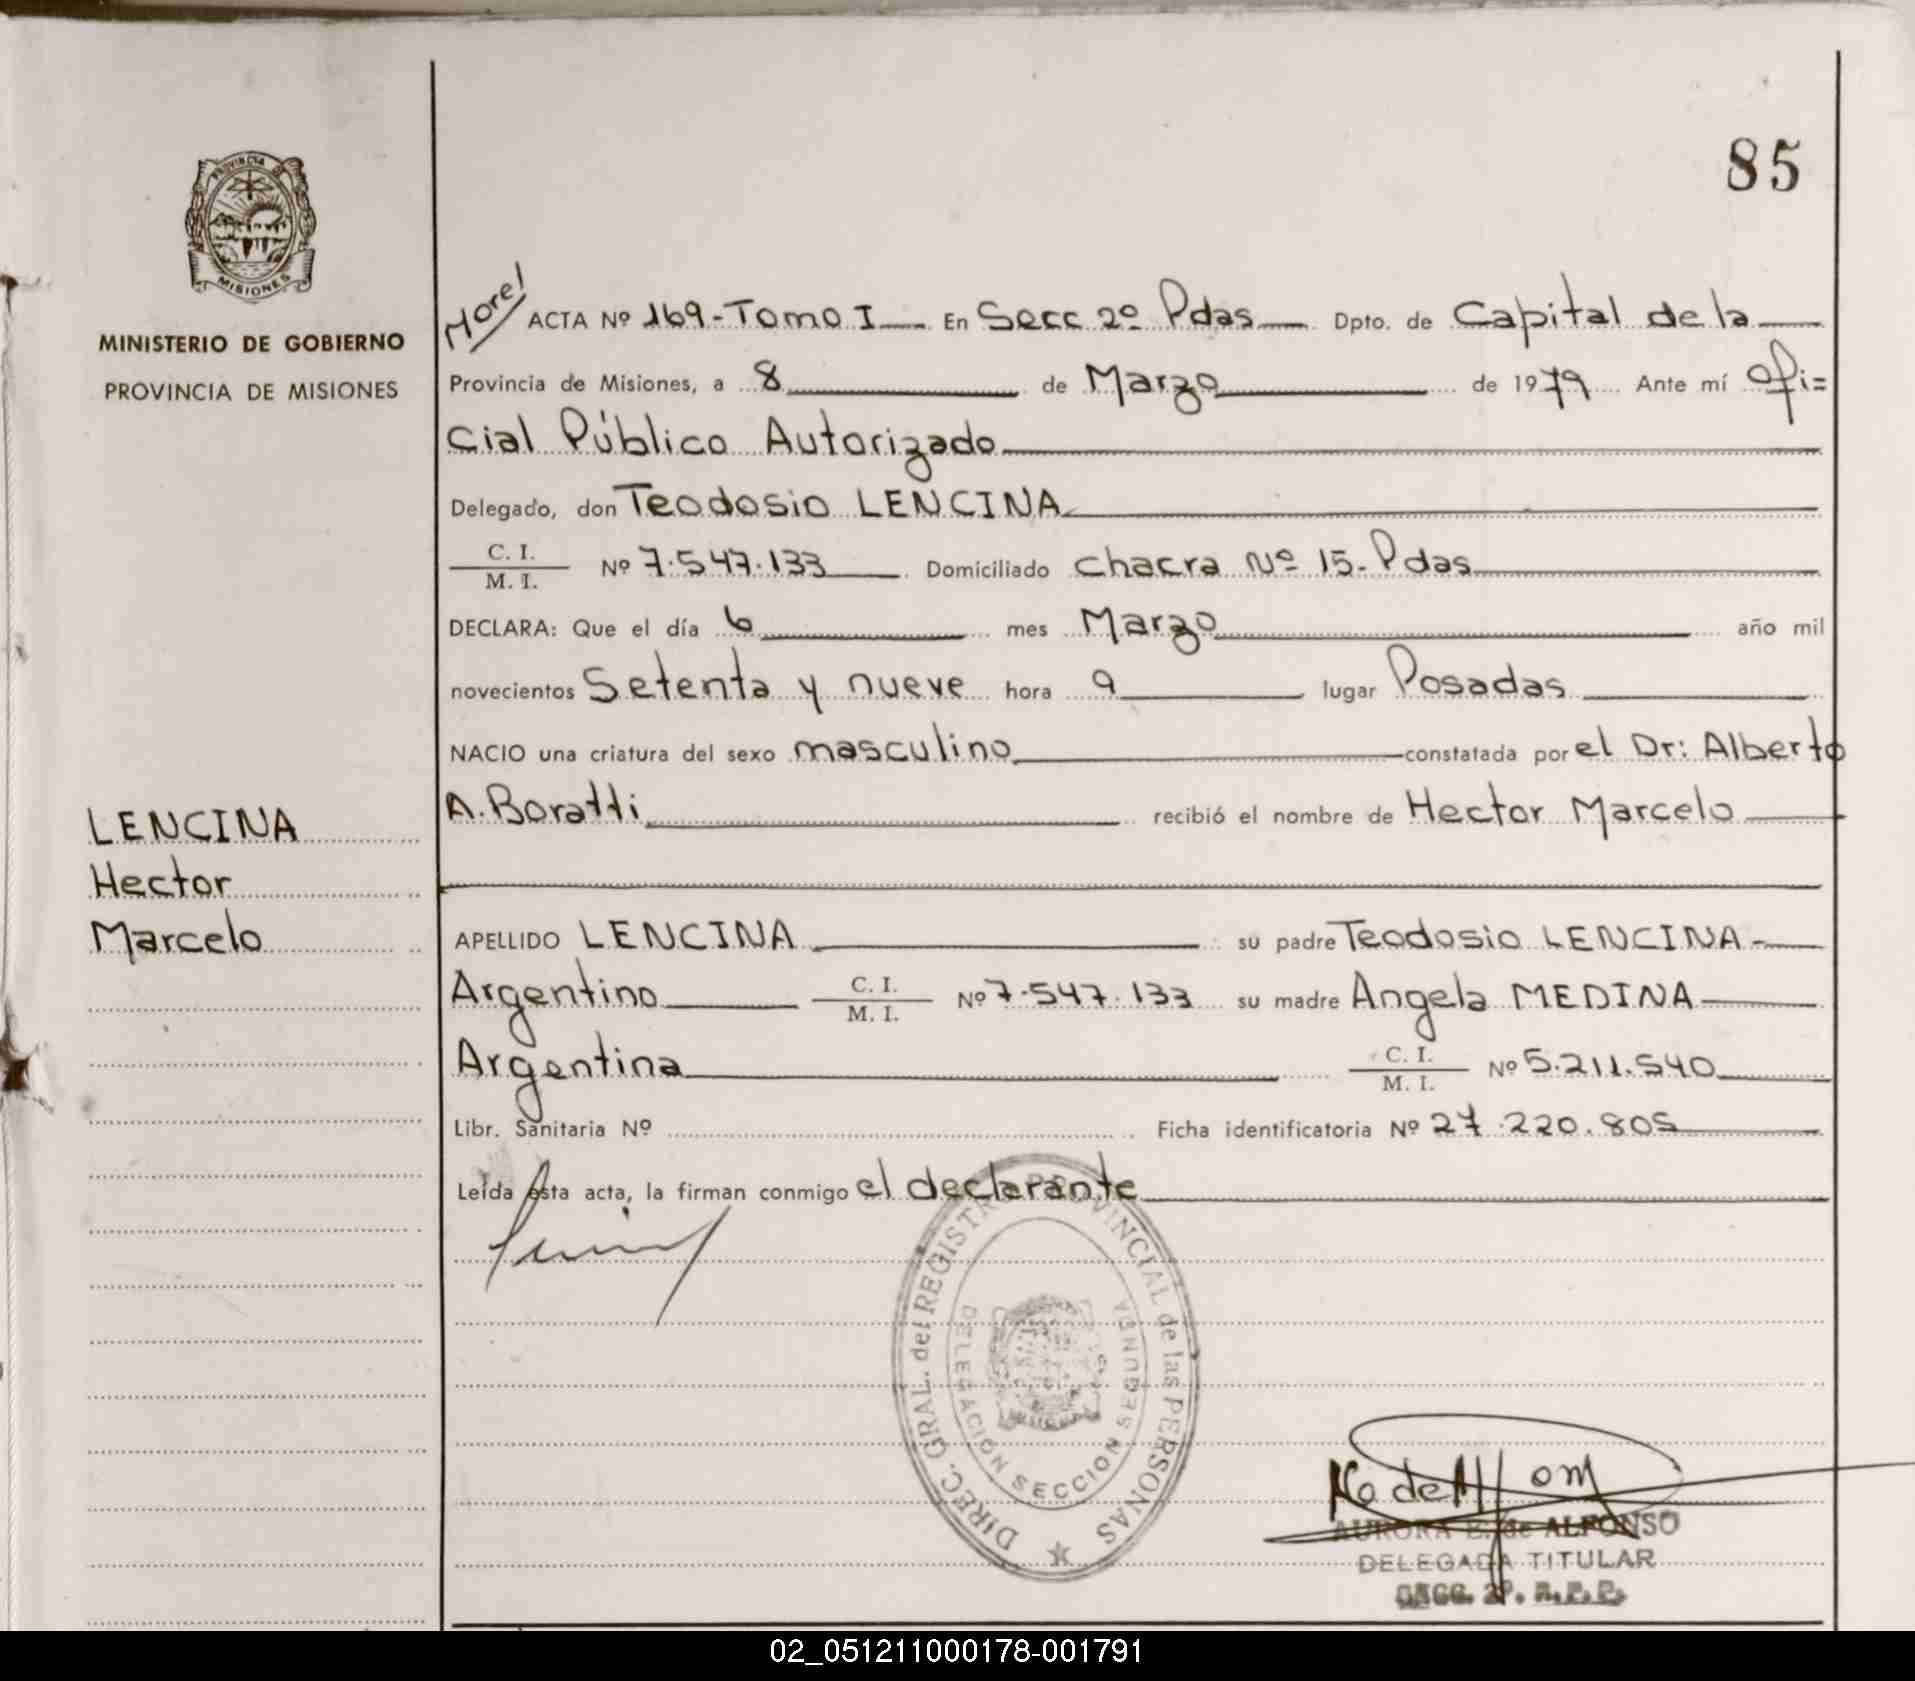 85
PROVINCIA DE
MISIONES
MINISTERIO DE GOBIERNO
PROVINCIA DE MISIONES
LENCINA
Hector
Marcelo
Morel
ACTA Nº 169-Tomo I En Secc 2º Pdas Dpto. de Capital de la
Provincia de Misiones, a 8 de Marzo de 1979 Ante mí Ofi=
cial Público Autorizado
Delegado, don Teodosio LENCINA
C. I.
M. I. Nº 7.547.133 Domiciliado chacra Nº 15-Pdas
DECLARA: Que el día 6 mes Marzo año mil
novecientos Setenta y nueve hora 9 lugar Posadas
NACIO una criatura del sexo masculino constatada por el Dr: Alberto
A. Boratti recibió el nombre de Hector Marcelo
APELLIDO LENCINA su padre Teodosio LENCINA-
Argentino C. I. M. I. Nº 7.547.133 su madre Angela MEDINA
Argentina C. I. M. I. Nº 5.211.540
Libr. Sanitaria Nº Ficha identificatoria Nº 27.220.805
Leída esta acta, la firman conmigo el declarante
DIREC. GRAL. del REGISTRO PROVINCIAL de las PERSONAS
DELEGACION SECCION SEGUNDA
AURORA E. de ALFONSO
DELEGADA TITULAR
SECC. 2º. R.P.P.
02_051211000178-001791